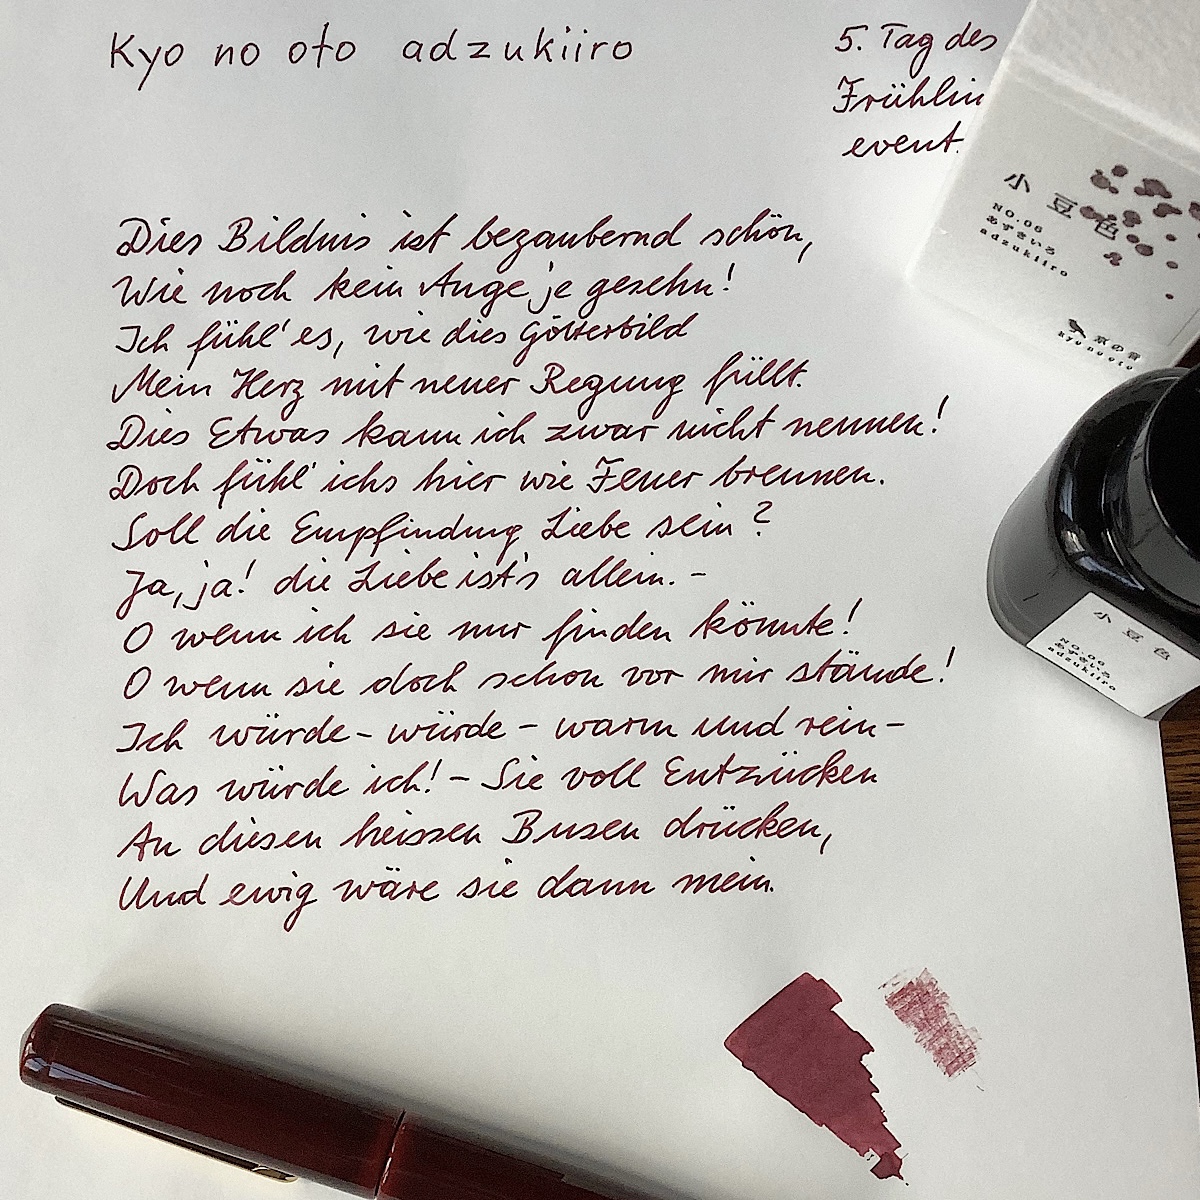 Kyo no oto adzukiiro
5. Tag des
Frühlin
event.
Dies Bildnis ist bezaubernd schön,
Wie noch kein Auge je gesehn!
Ich fühl' es, wie dies Götterbild
Mein Herz mit neuer Regung füllt.
Dies Etwas kann ich zwar nicht nennen!
Doch fühl' ichs hier wie Feuer brennen.
Soll die Empfindung Liebe sein?
Ja, ja! die Liebe ist's allein. -
O wenn ich sie nur finden könnte!
O wenn sie doch schon vor mir stände!
Ich würde - würde - warm und rein -
Was würde ich! - Sie voll Entzücken
An diesen heissen Busen drücken,
Und ewig wäre sie dann mein.
小豆色
NO.06
あずきいろ
adzukiiro
京の音
kyo no oto
小豆色
NO.06
あずきいろ
adzukiiro